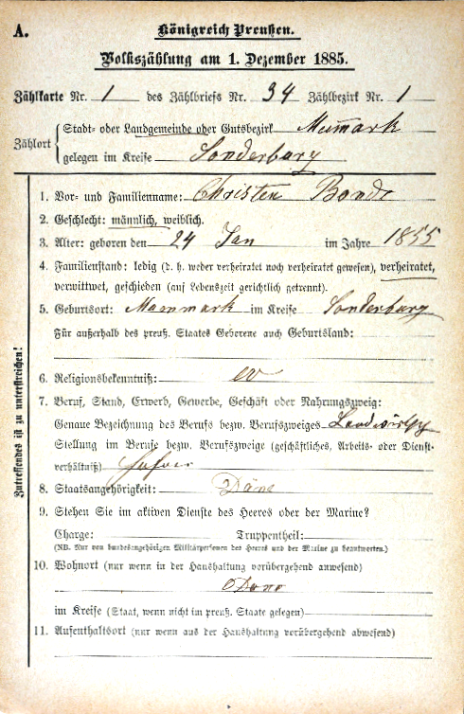 A.
Königreich Preußen.
Volkszählung am 1. Dezember 1885.
Zählkarte Nr. 1 des Zählbriefs Nr. 34 Zählbezirk Nr. 1
Zählort
Stadt- oder Landgemeinde oder Gutsbezirk Mummark
gelegen im Kreise Sonderburg
Zutreffendes ist zu unterstreichen!
1. Vor- und Familienname: Christen Bonde
2. Geschlecht: männlich, weiblich.
3. Alter: geboren den 24 Jan im Jahre 1855
4. Familienstand: ledig (d. h. weder verheiratet noch verheiratet gewesen), verheiratet,
verwittwet, geschieden (auf Lebenszeit gerichtlich getrennt).
5. Geburtsort: Maenmark im Kreise Sonderburg
Für außerhalb des preuß. Staates Geborene auch Geburtsland:
6. Religionsbekenntniß: ev
7. Beruf, Stand, Erwerb, Gewerbe, Geschäft oder Nahrungszweig:
Genaue Bezeichnung des Berufs bezw. Berufszweiges
Stellung im Berufe bezw. Berufszweige (geschäftliches, Arbeits- oder Dienst-
verhältniß)
8. Staatsangehörigkeit: Däne
9. Stehen Sie im aktiven Dienste des Heeres oder der Marine?
Charge: Truppentheil:
(NB. Nur von bundesangehörigen Militärpersonen des Heeres und der Marine zu beantworten.)
10. Wohnort (nur wenn in der Haushaltung vorübergehend anwesend)
im Kreise (Staat, wenn nicht im preuß. Staate gelegen)
11. Aufenthaltsort (nur wenn aus der Haushaltung vorübergehend abwesend)